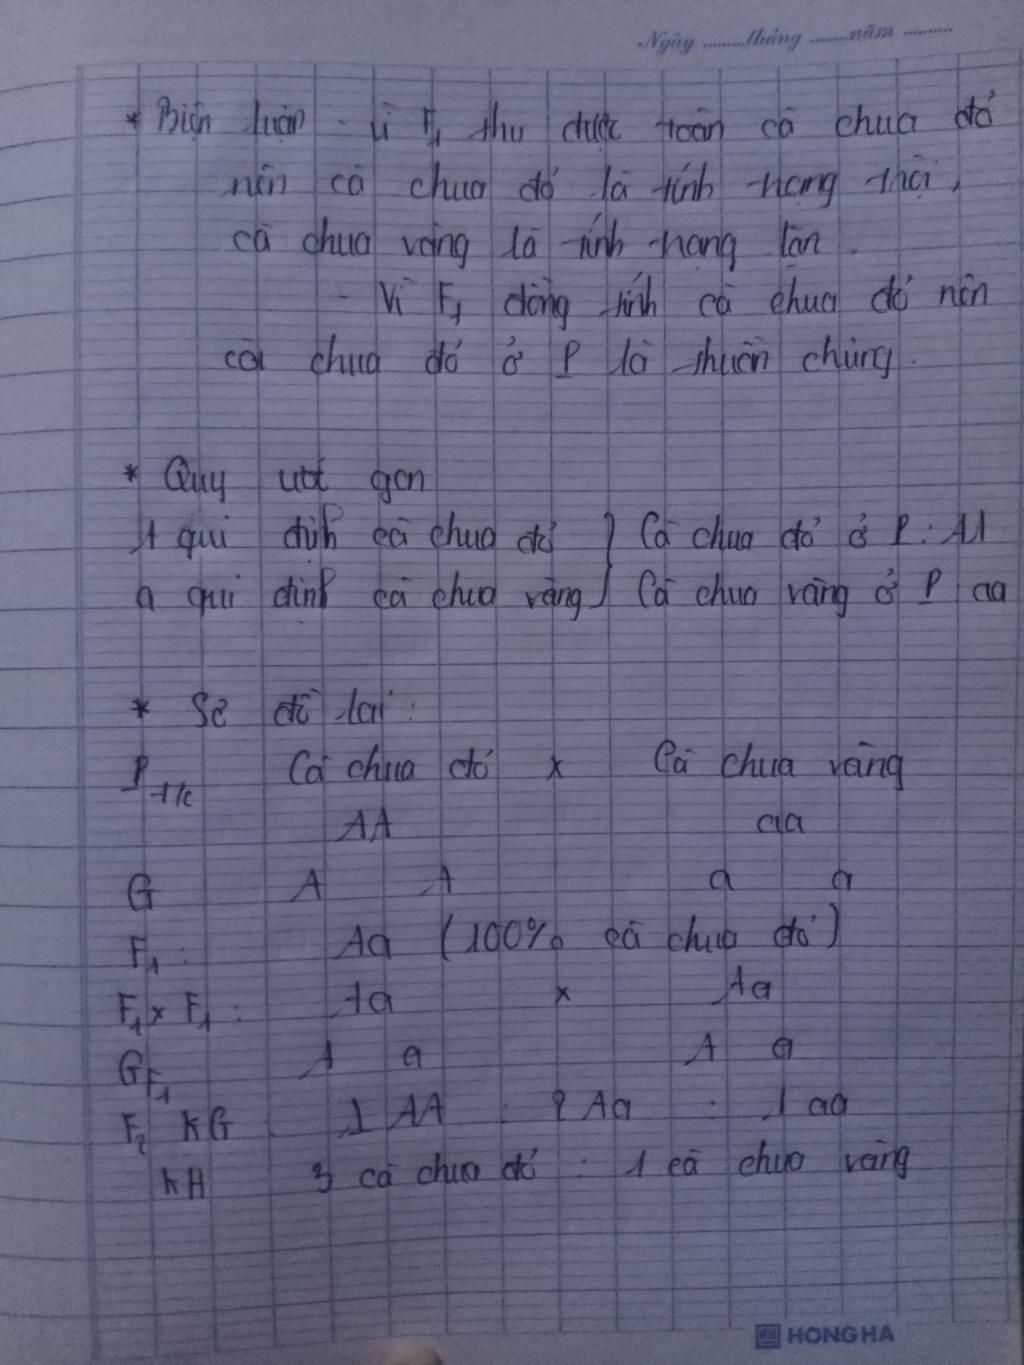 Ngày ........tháng ........năm ..........
* Biện luận - Vì F1 thu được toàn cà chua đỏ
nên cà chua đỏ là tính trạng trội,
cà chua vàng là tính trạng lặn.
- Vì F1 đồng tính cà chua đỏ nên
cà chua đỏ ở P là thuần chủng.
* Quy ước gen
A qui định cà chua đỏ } Cà chua đỏ ở P: AA
a qui định cà chua vàng } Cà chua vàng ở P aa
* Sơ đồ lai:
P t/c Cà chua đỏ x Cà chua vàng
AA aa
G A A a a
F1: Aa (100% cà chua đỏ)
F1 x F1: Aa x Aa
GF1 A a A a
F2 KG 1 AA : 2 Aa : 1 aa
KH 3 cà chua đỏ : 1 cà chua vàng
HONG HA